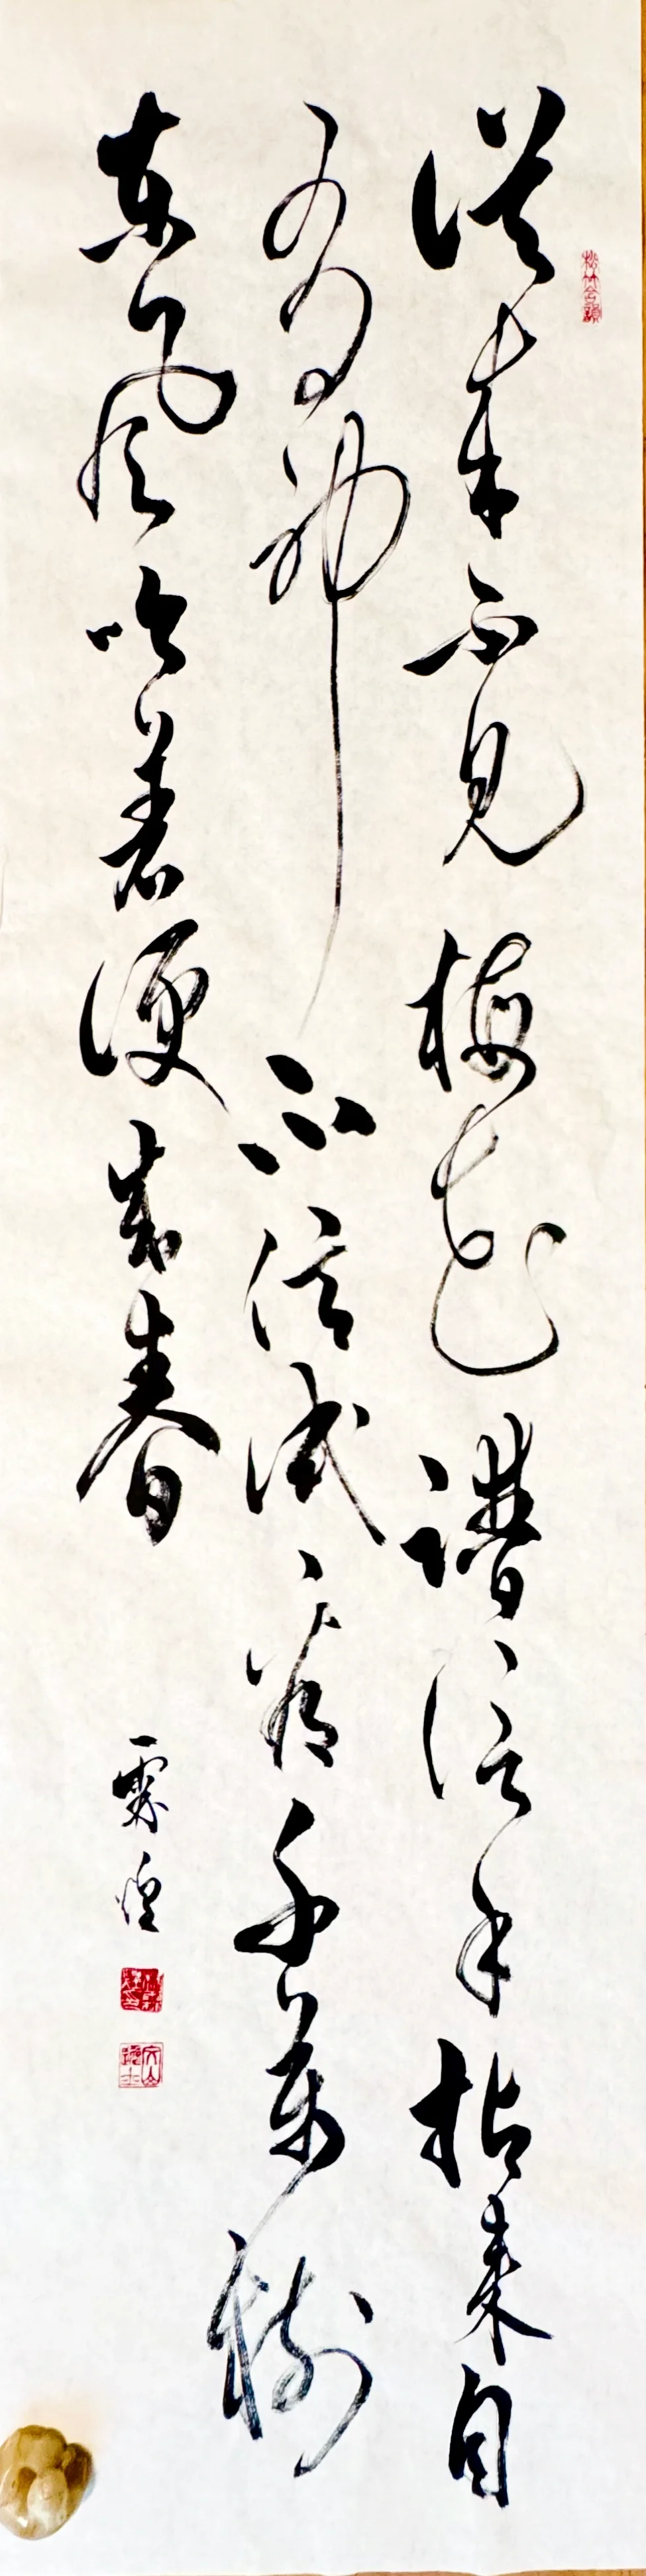 從来不見梅花譜信手拈来自
有神不信試看千萬樹
東風吹着便成春